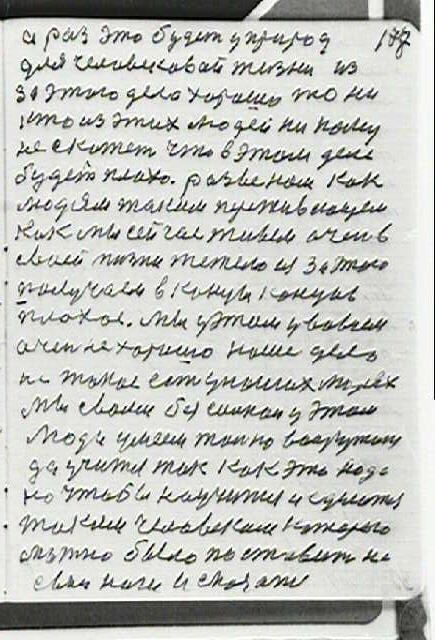 а раз это будет у природ 177
для человековай жизни из
за этого дело хорошо то ни
кто из этих людей ни кому
не скажет что в этом деле
будет плохо. разве нам как
людям таким проживающем
как мы сейчас живем очен в
своей жизни тежело из за этого
получаем в конци концов
плохое. мы у этом у во всем
очен не хорошо наше дело
не такое ест у наших людех
мы своем бу сонком у этом
люди умеем толко вооружому
да учится так как это надо
но чтобы научится и сделатся
таким человеком которого
можно было поставить на
свои ноги и сказать